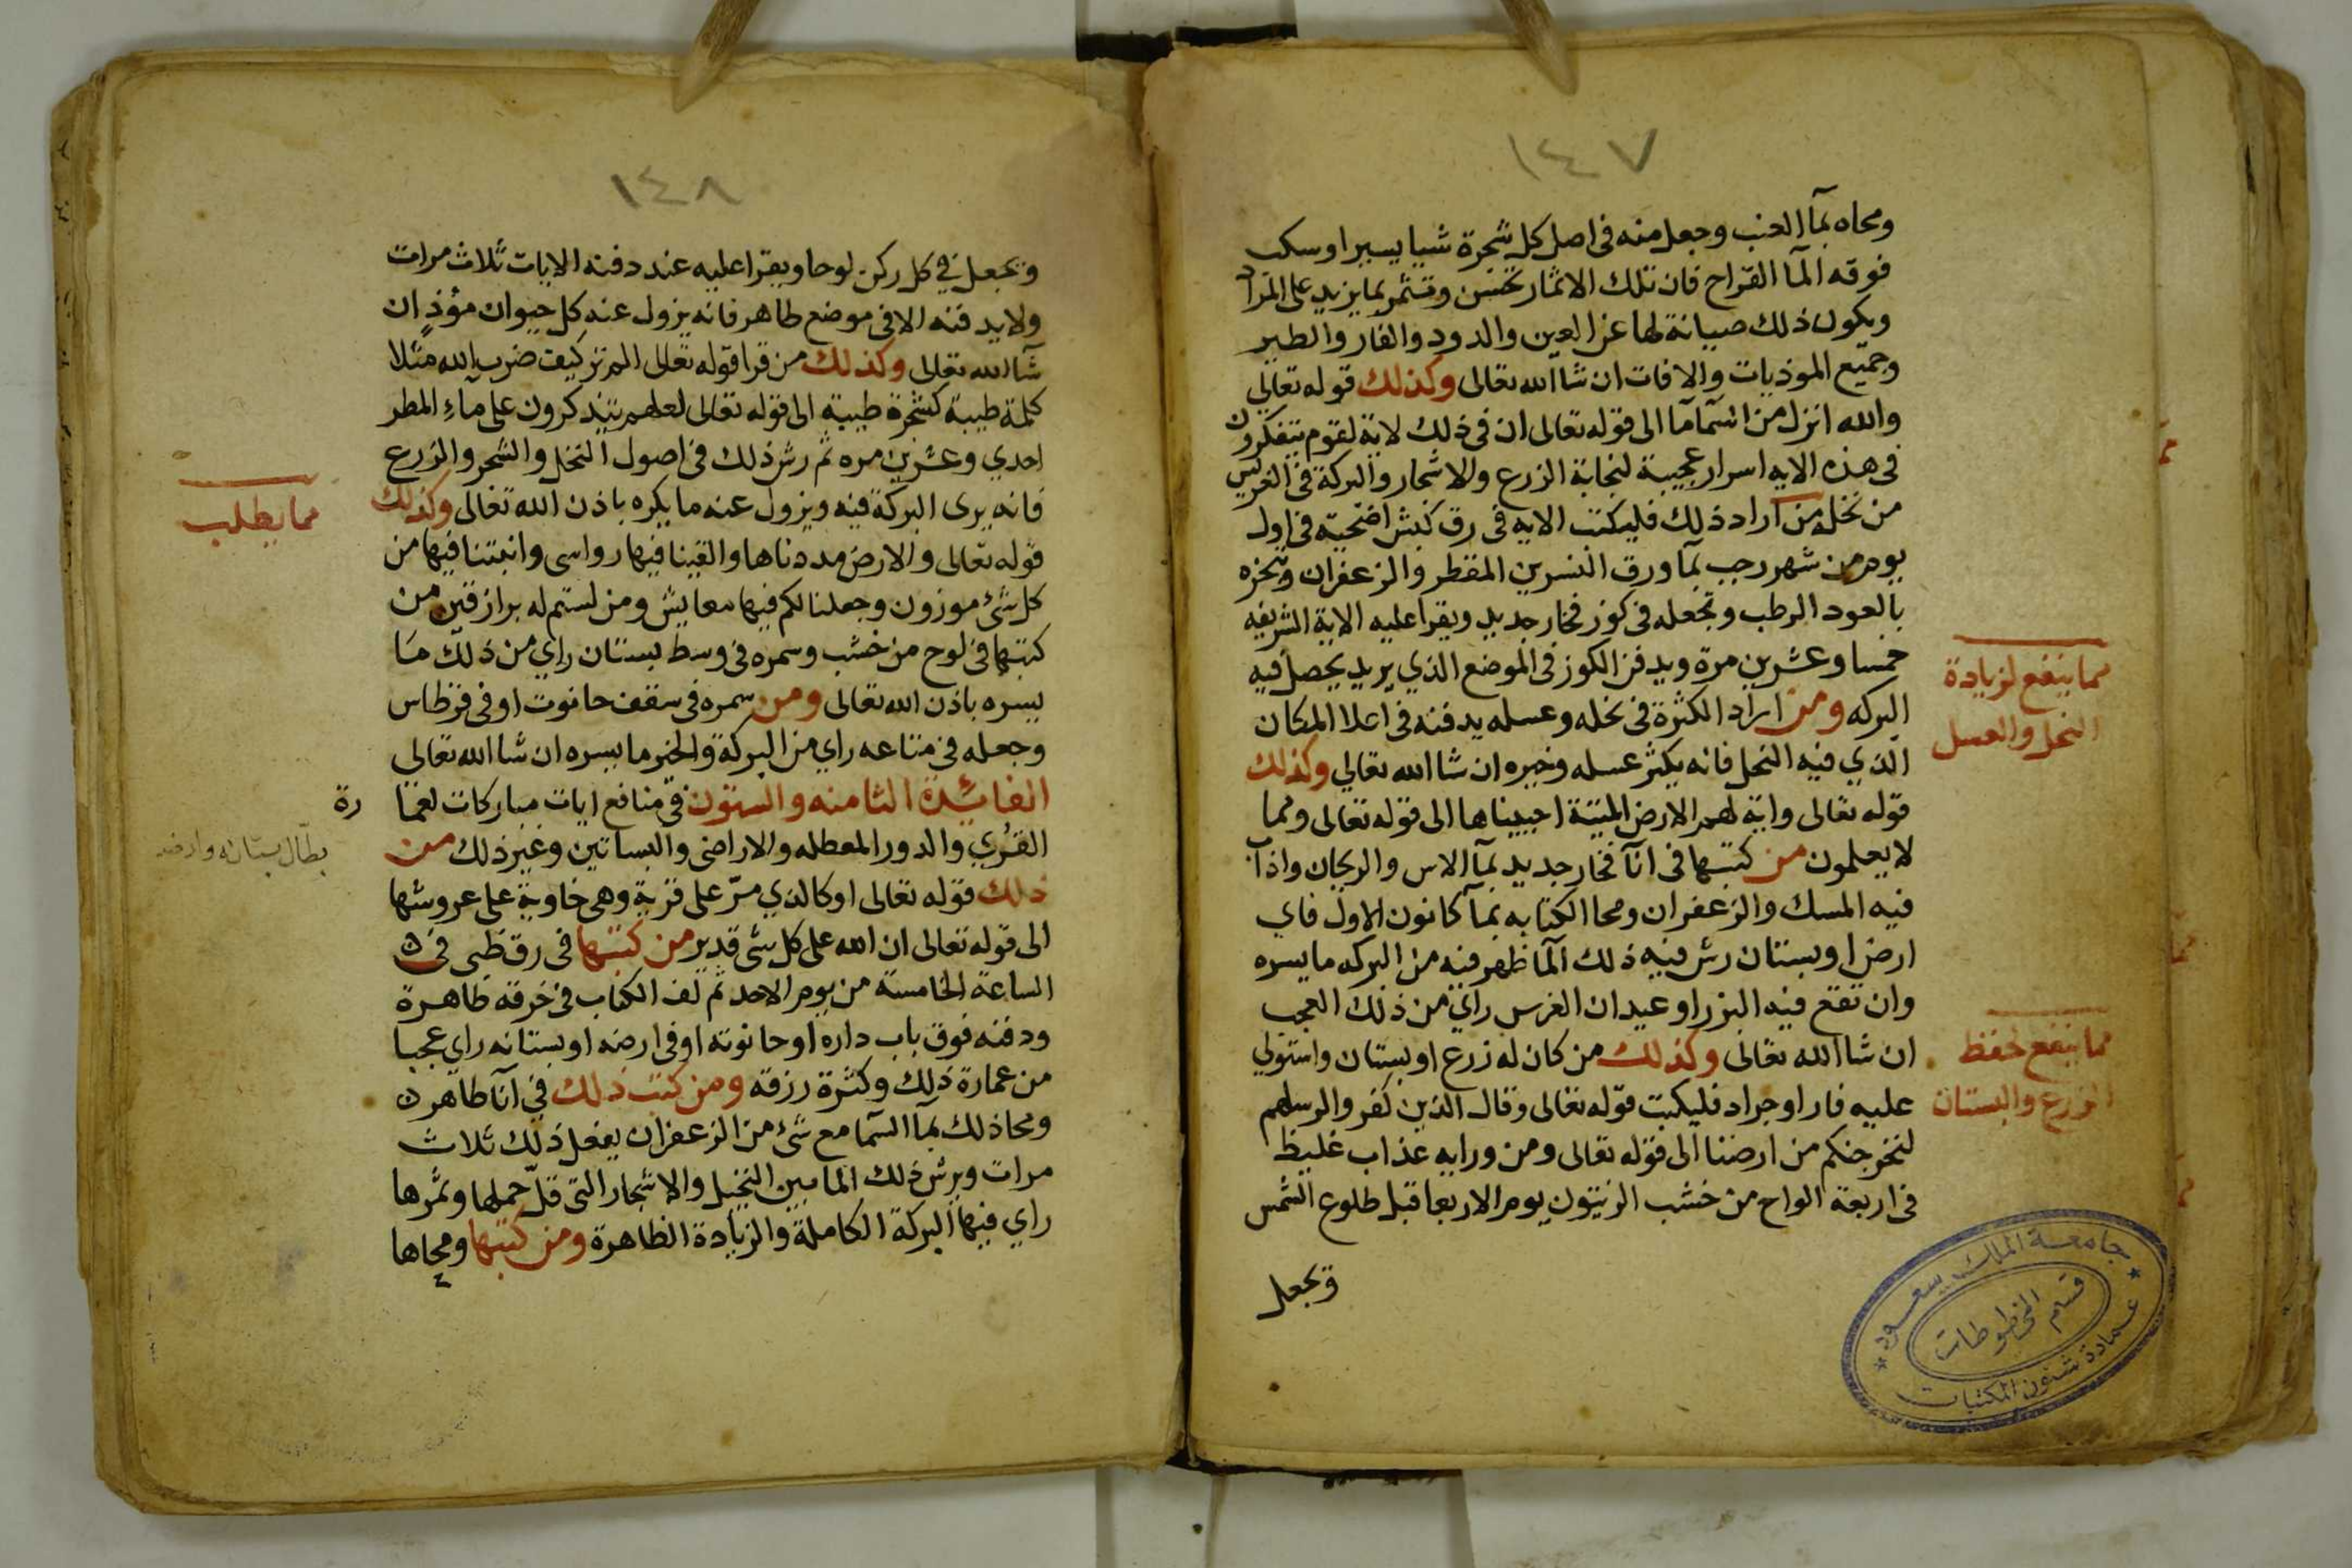 ١٤٧
ومحاه بمآ العنب وجعل منه فى اصل كل شجرة شيا يسيرا وسكب
فوقه المآ القراح فان تلك الاثمار تحسن وتثمر بما يزيد على المراد
ويكون ذلك صيانة لها عن العين والدود والفار والطير
وجميع الموذيات والافات ان شا الله تعالى وكذلك قوله تعالى
والله انزل من السمآ مآ الى قوله تعالى ان فى ذلك لاية لقوم يتفكرون
فى هذه الايه اسرار عجيبة لنجابة الزرع والاشجار والبركة فى الغريس
من نخله من اراد ذلك فليكتب الايه فى رق كبش اضحيّه فى اول
يوم من شهر رجب بمآ ورق النسرين المقطر والزعفران وتبخره
بالعود الرطب وتجعله فى كوز فخار جديد ويقرا عليه الاية الشريفه
خمسا وعشرين مرة ويدفن الكوز فى الموضع الذي يريد يحصل فيه
البركه ومن اراد الكثرة فى نخله وعسله يدفنه فى اعلا المكان
الذي فيه النحل فانه يكثر عسله وخيره ان شا الله تعالي وكذلك
قوله تعالى واية لهم الارض الميتة احييناها الى قوله تعالى ومما
لا يعلمون من كتبها فى انآ فخار جديد بمآ الاس والريحان واذاب
فيه المسك والزعفران ومحا الكتابه بمآ كانون الاول فاي
ارض او بستان رش فيه ذلك المآ ظهر فيه من البركه ما يسره
وان نقع فيه البزر او عيدان الغرس راي من ذلك العجب
ان شا الله تعالى وكذلك من كان له زرع او بستان واستولي
عليه فار او جراد فليكبت قوله تعالى وقال الذين كفروا لرسلهم
لنخرجنكم من ارضنا الى قوله تعالى ومن ورايه عذاب غليظ
فى اربعة الواح من خشب الزيتون يوم الاربعا قبل طلوع الشمس
وتجعل
مما ينفع لزيادة
النحل والعسل
مما ينفع لحفظ
الزرع والبستان
جامعة الملك سعود
قسم المخطوطات
عمادة شئون المكتبات
١٤٨
وتجعل في كل ركن لوحا ويقرا عليه عند دفنه الايات ثلاث مرات
ولا يدفنه الا فى موضع طاهر فانه يزول عنه كل حيوان مؤذٍ ان
شآ الله تعالى وكذلك من قرا قوله تعالى الم تر كيف ضرب الله مثلا
كلمة طيبة كشجرة طيبة الى قوله تعالى لعلهم يتذكرون على ماءِ المطر
احدي وعشرين مره ثم رش ذلك فى اصول النخل والشجر والزرع
فانه يرى البركة فيه ويزول عنه ما يكره باذن الله تعالى وكذلك
قوله تعالى والارض مددناها والقينا فيها رواسى وانبتنا فيها من
كل شئ موزون وجعلنا لكم فيها معايش ومن لستم له برازقين من
كتبها فى لوح من خشب وسمره فى وسط بستان راي من ذلك ما
يسره باذن الله تعالى ومن سمره فى سقف حانوت او فى قرطاس
وجعله فى متاعه راي من البركة والخير ما يسره ان شا الله تعالى
الفائدة الثامنه والستون فى منافع ايات مباركات لعما
رة
القرُي والدور المعطله والاراضى والبساتين وغير ذلك من
ذلك قوله تعالى او كالذي مرّ على قرية وهى خاوية على عروشها
الى قوله تعالى ان الله على كل شى قدير من كتبها فى رق ظبى فى
الساعة الخامسة من يوم الاحد ثم لف الكتاب فى خرقه طاهرة
ودفنه فوق باب داره او حانوته او فى ارضه او بستانه راي عجبا
من عمارة ذلك وكثرة رزقه ومن كتب ذلك في انآ طاهر
ومحا ذلك بمآ السمآ مع شئ من الزعفران يفعل ذلك ثلاث
مرات ويرش ذلك المآ بين النخيل والاشجار التى قلّ حملها وثمرها
راي فيها البركة الكاملة والزيادة الظاهرة ومن كتبها ومحاها
مما يطلب
بطّال بستانه وارضه